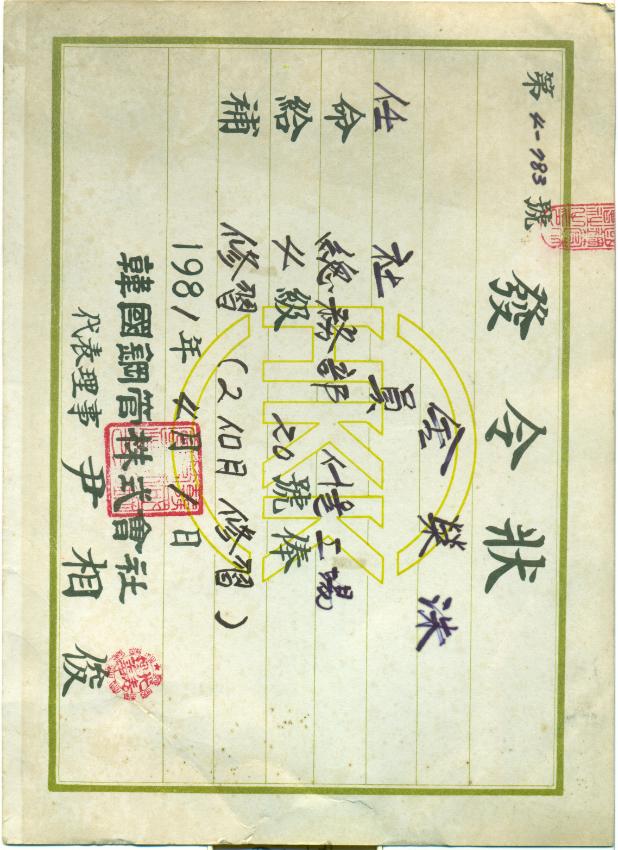 第 4-783 號
發令狀
金榮洙
任 社員
命 總務部 工場
給 4級 20號俸
補 修習 (2個月 修習)
1981年 4月 1日
韓國鋼管株式會社
代表理事 尹相俊
HKK